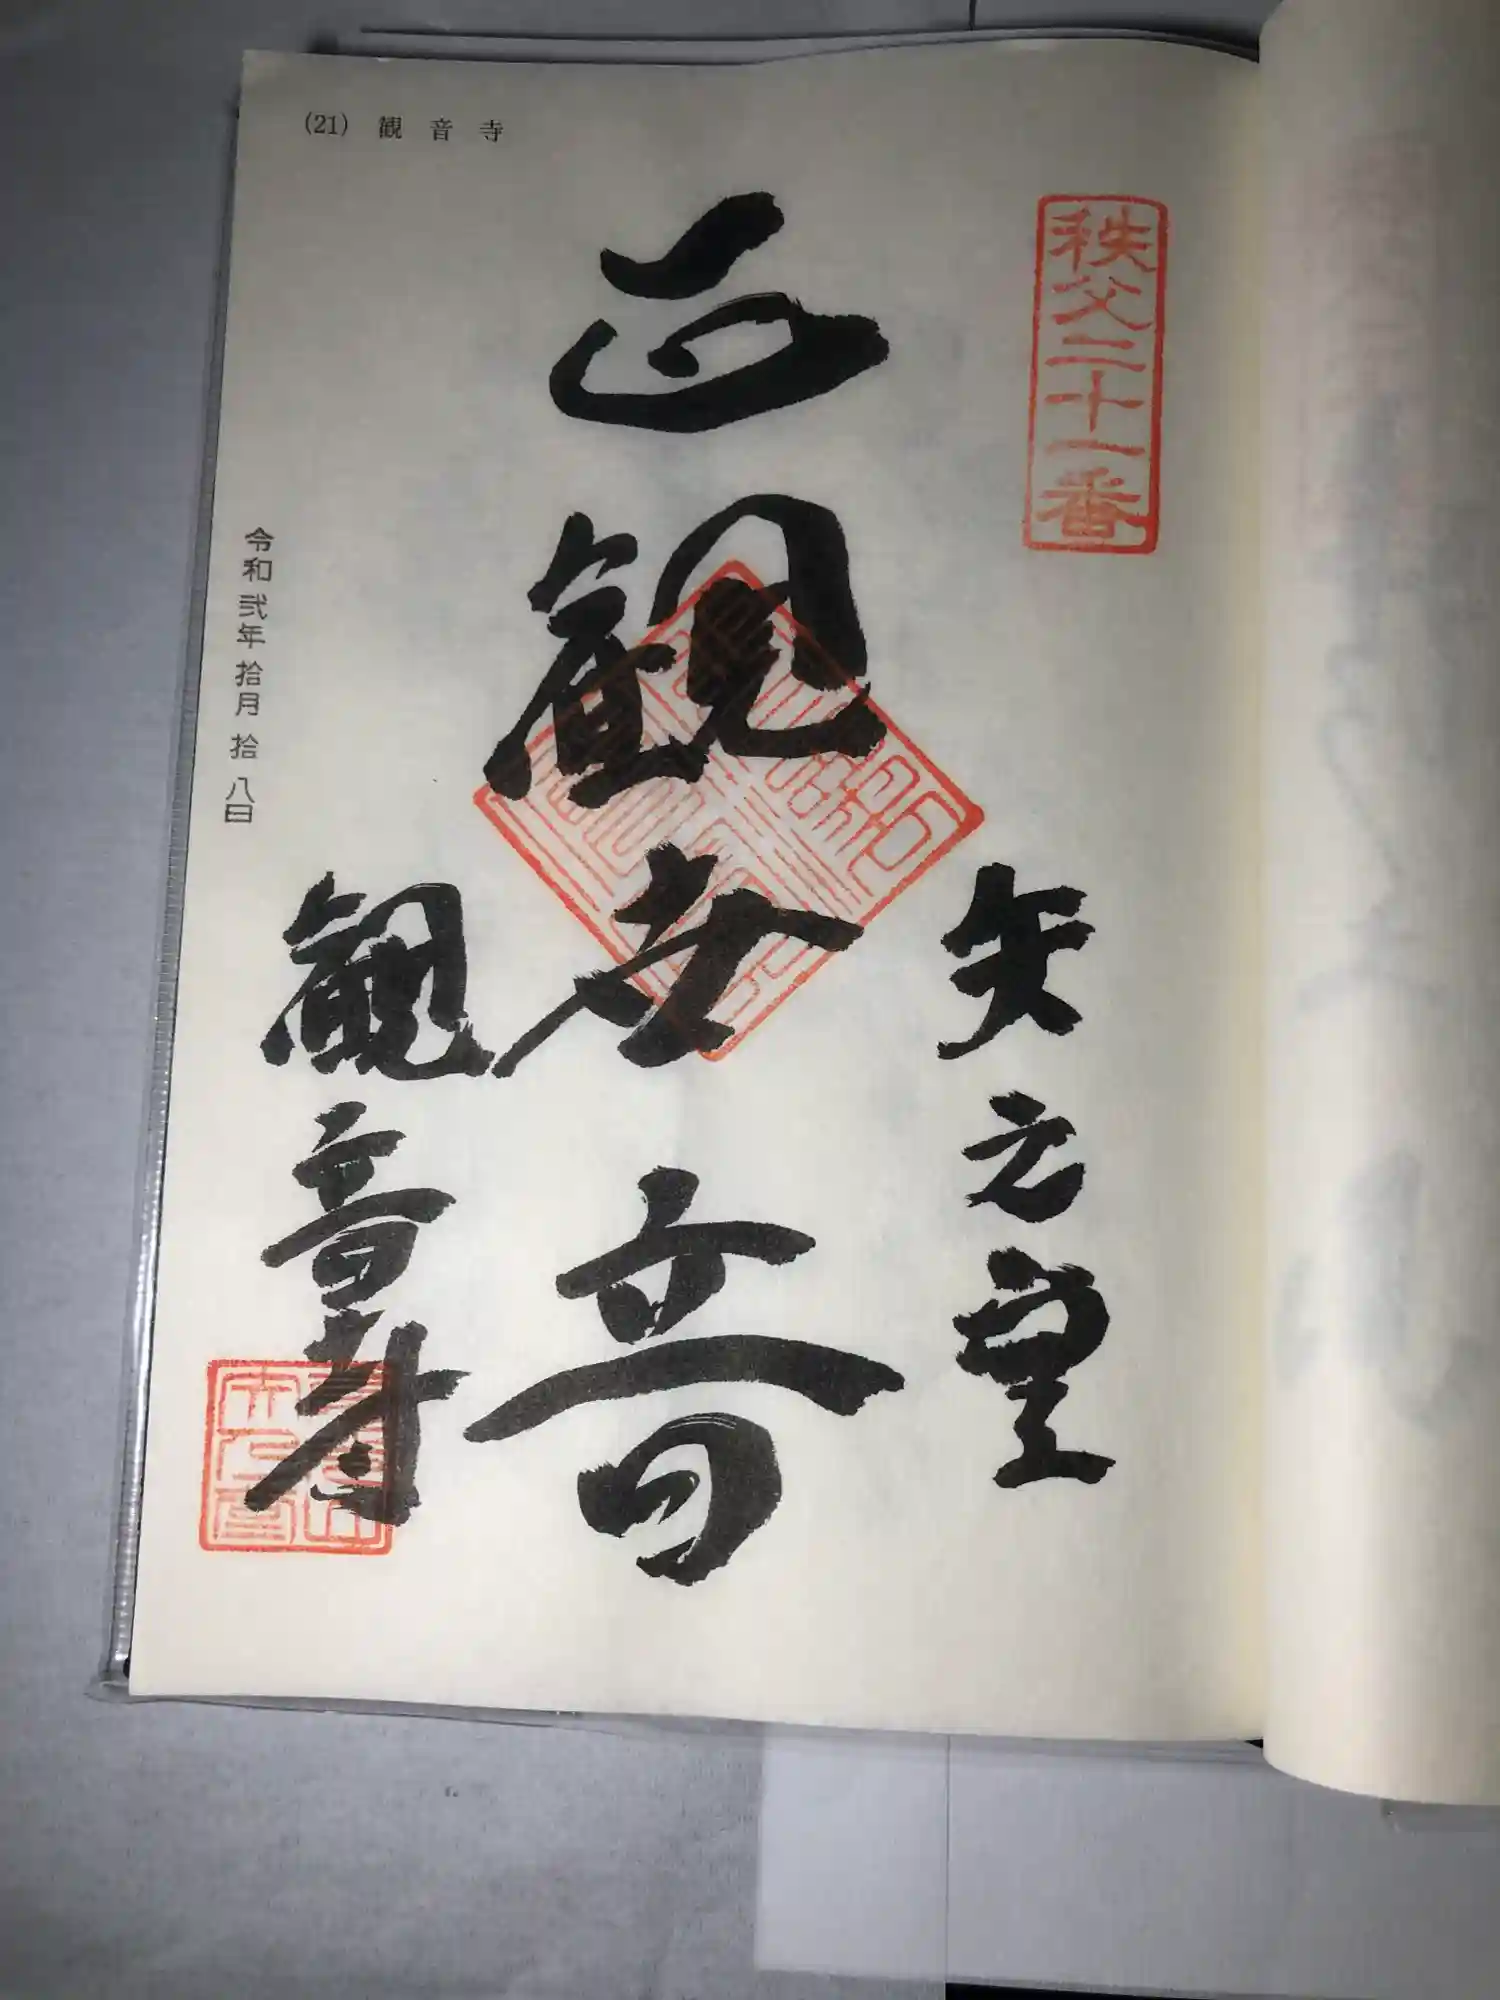 (21) 観音寺
秩父二十一番
矢之堂
正観世音
観音寺
令和弐年拾月拾八日